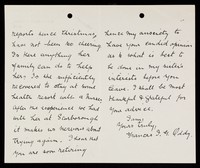 reports since Christmas,
has not been so cheering.
Is there anything her
family can do to help
her? Is she sufficiently
recovered to stay at some
health resort with a nurse,
after the experience we had
with her at Scarborough
it makes us nervous about
trying again. I hear that
you are soon retiring
hence my anxiety to
have your candid opinion
as to what is best to
be done in my sister's
interests before you
leave. I shall be most
thankful & grateful for
your advice.
Yours
truly
Frances